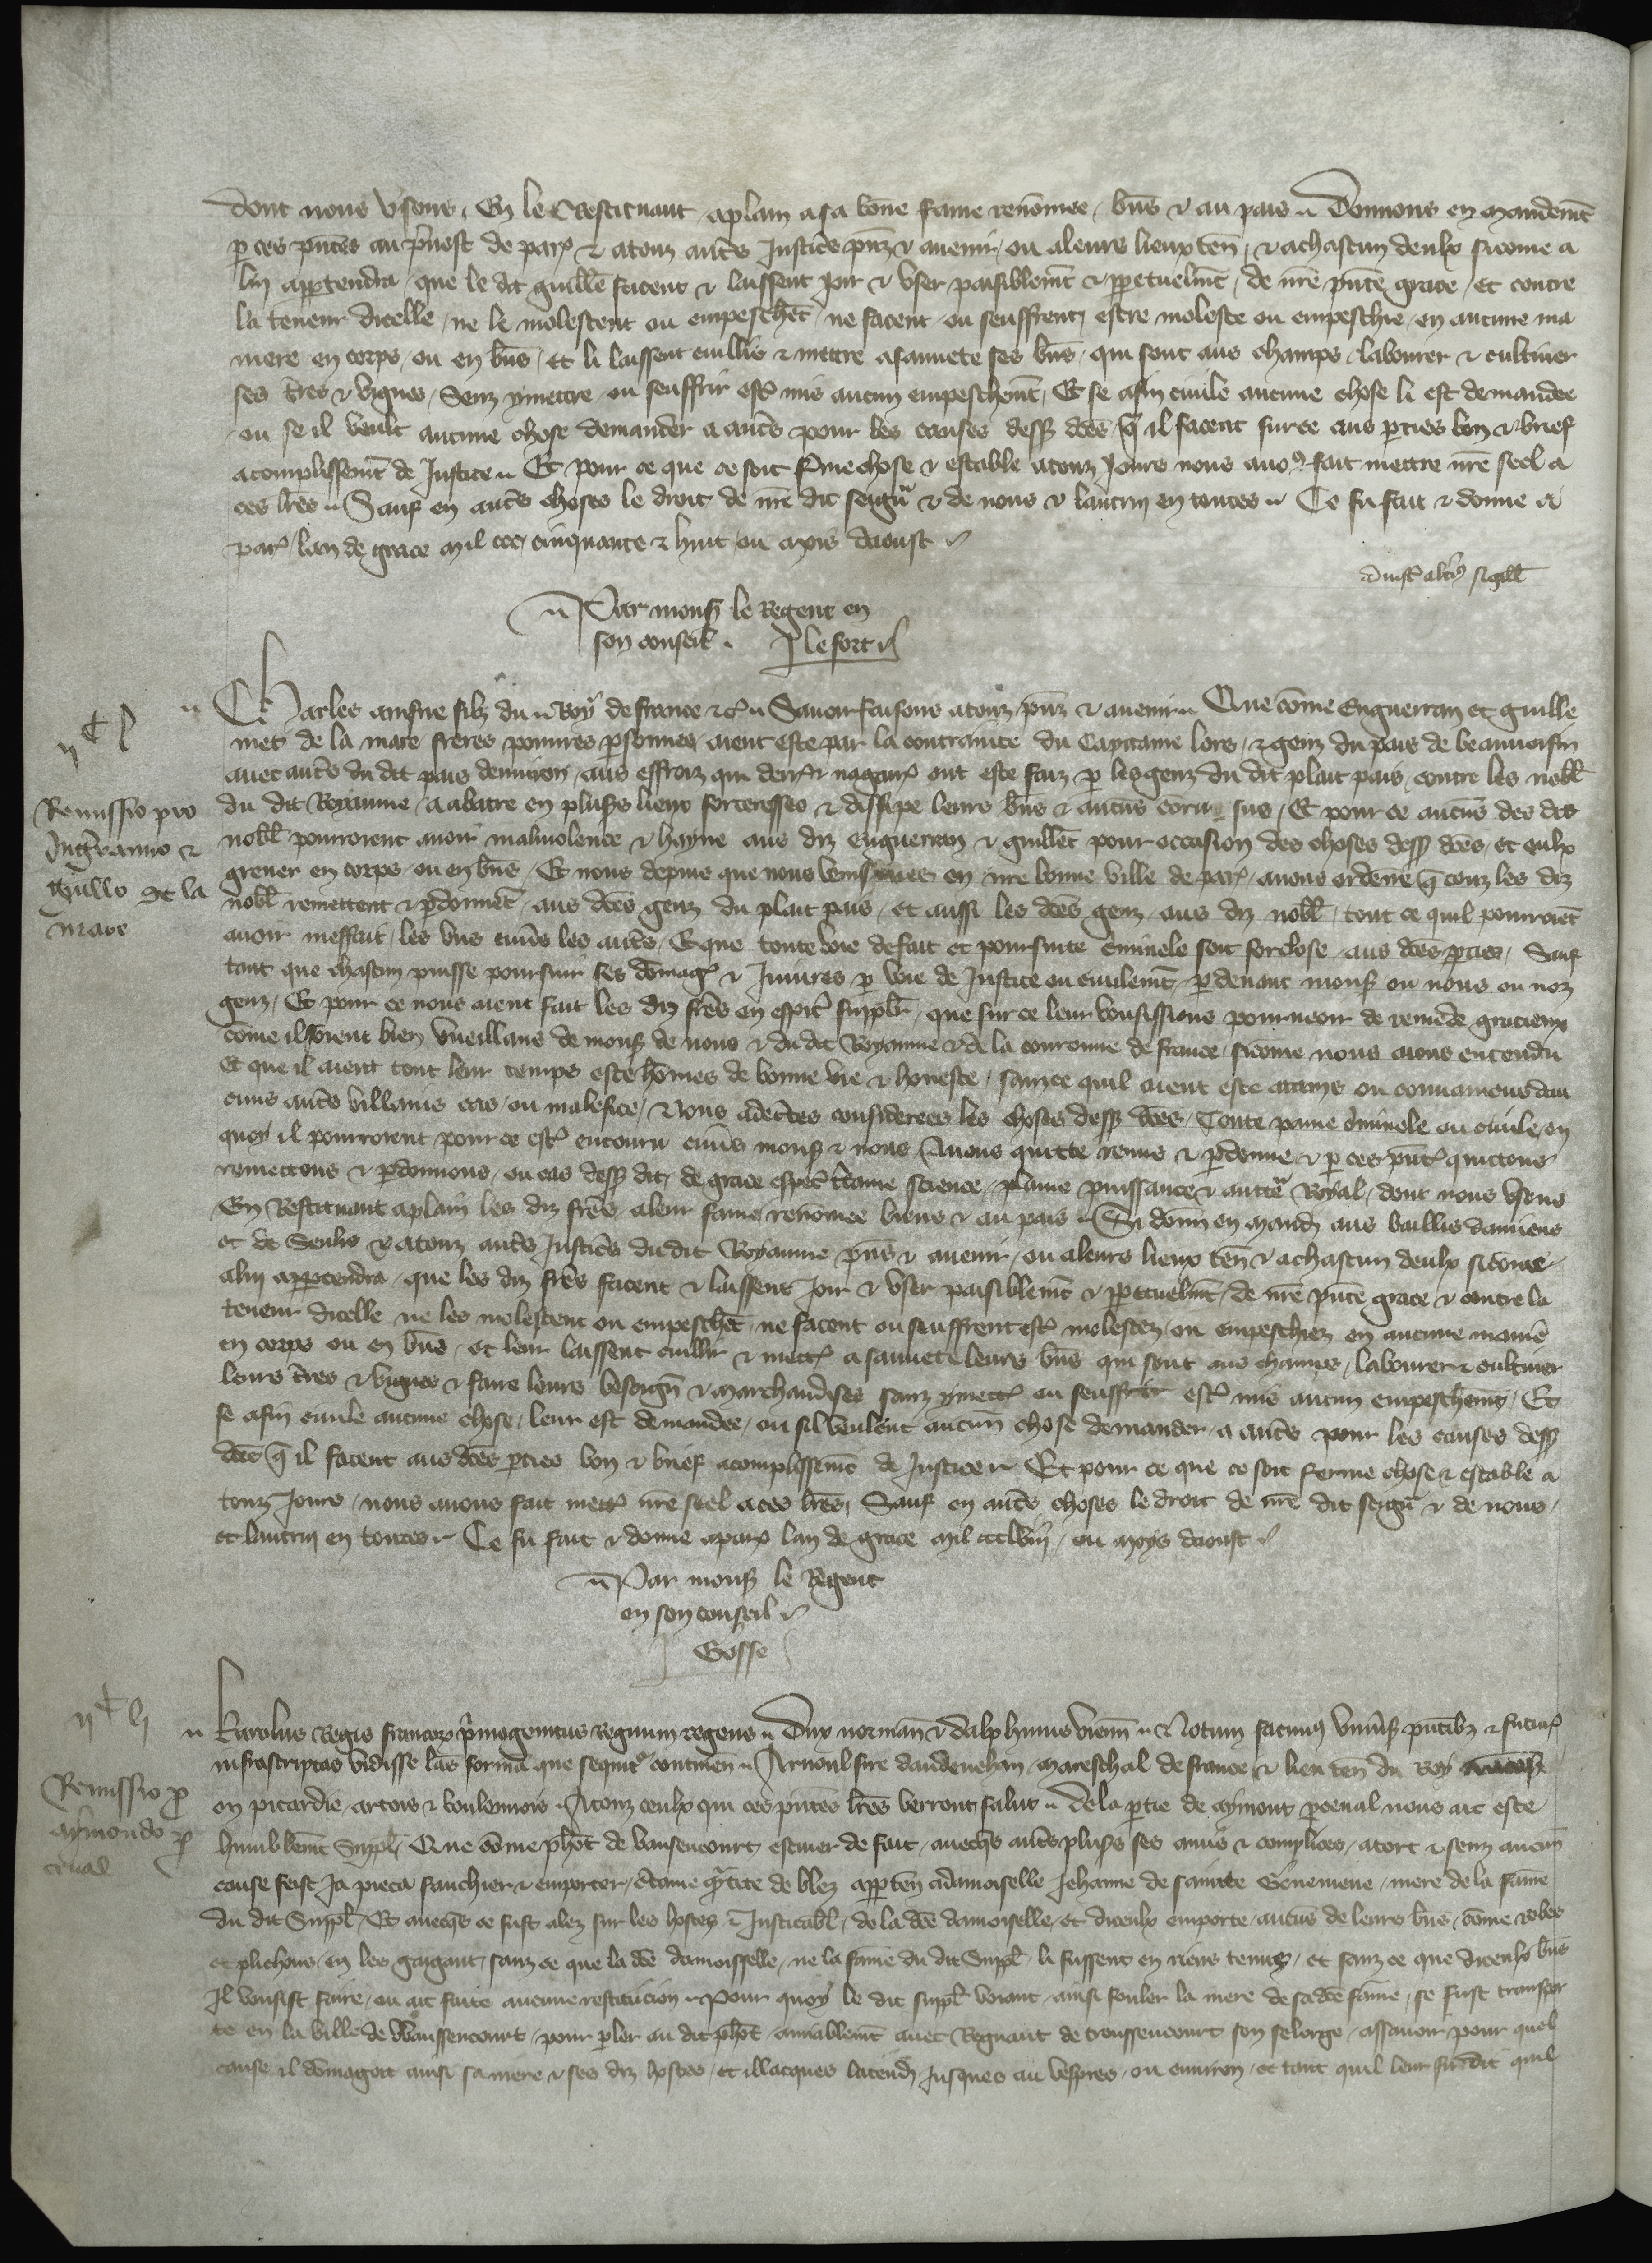 dont nous usons, En le Restituant aplain a sa bōne fame renōmee, bn̄s & au pais. Donnons en mandem̄t
p ces pn̄tes au p̄vost de par᷑ & a touz aut̄s Justic̄s pn̄z & avenir ou a leurs lieux ten̄, & a chascun deulx sicōme a
lui appartendra, que le dit guill̄e facent & laissent joir & user paisiblem̄t & ppetuelm̄t, de nr̄e pn̄te grace, et contre
la teneur dicelle, ne le molestent ou empeschēt ne facent ou seuffrent, estre moleste ou empeschie, en aucune ma
niere en corps, ou en bn̄s, et li laissent cuillir & mettre a sauvete ses bn̄s, qui sont aus champs, labourer & cultiver
ses tr̄es & vignes, Senz y mettre ou seuffrir est᷑ mis aucun empeschem̄t, Et se a fin civile aucune chose li est demandee
ou se il veult aucune chose demander a aut̄s pour les causes dess᷑ dc̄es, q̄ il facent sur ce aus pties bon & brief
acomplissem̄t de Justice. Et pour ce que ce soit f̄me chose & estable a touz Jours nous avōs fait mettre nr̄e seel a
ces lr̄es. Sauf en aut̄s choses le droit de nr̄e dit seigr̄ & de nous & lautrui en toutes. Ce fu fait & donne a
par᷑, lan de grace mil ccc, cinquante & huit, ou mois daoust
sigill̄
Par mons᷑ le Regent en
son conseil. J le fort
Charles ainsne filz du Roy de france &c᷑. Savoir faisons a touz pn̄z & avenir. Que cōme Enguerran et guille
met de la mare freres pouvres psonnes, aient este par la contrainte du Capitaine lors, & genz du pais de beauvoisin
avec aut̄s du dit pais denviron, aus effroiz qui derr̄ & nagair᷑ ont este faiz p les genz du dit plait pais, contre les nobl̄
du dit Royaume, a abatre en plus̄s lieux forteresses & dissipe leurs bn̄s & aucūs Et pour ce aucūs des dis
nobl̄ pourroient avoir malivolence & hayne aus diz enguerran & guill̄et pour occasion des choses dess᷑ dc̄es, et eulx
grever en corps, ou en bn̄s, Et nous depuis que nous venismes en nr̄e bonne ville de par᷑, avons ordene q̄ touz les diz
nobl̄ remettent & pdonnēt, aus dc̄es genz du plait pais, et aussi les dc̄es genz, aus diz nobl̄, tout ce quil pourroiēt
avoir meffait, les uns envs̄ les aut̄s, & que toute voie de fait et poursuite c̄minele soit forclose, aus dc̄es pties, Sauf
tant que chascun puisse poursuir ses dōmag᷑ & Injures p voie de Justice ou civilem̄t, p devant mons᷑ ou nous ou noz
genz, Et pour ce nous aient fait les diz fr̄es en esp̄it supplier, que sur ce leur vousissions pourveoir de remede gracieux
cōme il soient bien vueillans de mons᷑ de nous & du dit Royaume & de la couronne de france, sicōme nous avons entendu
et que il aient tout leur temps este hōmes de bonne vie & honeste, sanz ce quil aient este attains ou convaincus dau
cuns aut̄s villains cas, ou malefice, Nous adc̄tes considerees les choses dess᷑ dc̄es, Toute paine c̄iminele ou civile, en
quoy il pourroient pour ce est᷑ encouru envs̄ mons᷑ & nous Avons quitte remis & pdonne & p ces pn̄t᷑ quittons
remettons & pdonnons, ou cas dess᷑ dit, de grace esp̄al c̄taine science, plaine puissance & auct̄e Royal, dont nous usons
En Restituant a plain les diz fr̄es a leur fame, renōmee, biens & au pais. Si donn̄ en mand̄ aus baillis damiens
et de Senlis & a touz aut̄s Justic̄s du dit Royaume pn̄s & avenir, ou a leurs lieux ten̄ & a chascun deulx sicōme
a lui appartendra, que les diz fr̄es facent & laissent joir & user paisiblem̄t & ppetuelm̄t, de nr̄e pn̄te grace & contre la
teneur dicelle ne les molestent ou empeschēt, ne facent ou seuffrent est᷑ molestez, ou empeschiez en aucune manīe
en corps ou en bn̄s, et leur laissent cuillir & mett᷑ a sauvete leurs bn̄s qui sont aus champs, labourer & cultiver
leurs tr̄es & vignes & faire leurs besoign̄ & marchandises sanz y mett᷑ ou seuffrir est᷑ mis aucun empeschem̄t, Et
se a fin civile aucune chose, leur est demandee, ou sil veulent aucun̄ chose demander, a aut̄s pour les causes dess᷑
dc̄es q̄ il facent aus dc̄es pties bon & brief acomplissem̄t de Justice. Et pour ce que ce soit ferme chose & estable a
touz Jours, nous avons fait mett᷑ nr̄e seel a ces lr̄es, Sauf en aut̄s choses le droit de nr̄e dit seigr̄ & de nous,
et lautrui en toutes. Ce fu fait & donne a par᷑ lan de grace mil ccclviii, ou moys daoust
Remissio pro
Ingeranno &
Guill̄o de la
mare
Par mons᷑ le Regent
en son conseil.
Gosse
Karolus Regis francor᷑ p̄mogenitus Regnum regens. Dux norman̄ & dalphinus vienn̄. Notum facimus univs̄is pn̄tib᷑ & futur᷑
infrascriptas vidisse lr̄as formā que sequit᷑ continen̄. Arnoul sire daudenehan, mareschal de france & lieu ten̄ du Roy
en picardie, artois & boulenois. A touz ceulx qui ces pn̄tes lr̄es verront, salut. De la ptie de aymont pcenal nous ait este
humblem̄t suppl̄. Que cōme ph̄ot de vausencourt escuier de fait, avecqs̄ aut̄s plus̄s ses amis & complices, a tort & senz aucun̄
cause feist ja pieca fauchier & emporter, c̄taine q̄ntite de blez apparten̄ a damoiselle Jehanne de sainte Genevieve, mere de la fame
du dit Suppl̄. Et avecqs̄ ce fust alez sur les hostes & Justicabl̄, de la dc̄e damoiselle, et diceulx emporte, aucūs de leurs bn̄s, cōme robes
et plichons, en les gaigant, sanz ce que la dc̄e damoisselle, ne la fame du dit Suppl̄ li fussent en riens tenus, et sanz ce que diceulx bn̄s
Il vousist faire, ou ait faite aucune restitucion. Pour quoy le dit suppl̄ voiant ainsi fouler la mere de sa dc̄e fame, se fust transpor
te en la ville de Waussencourt, pour pler au dit ph̄ot amiablem̄t avec Regnaut de troussencourt son serorge, assavoir pour quel
cause il dōmagoit ainsi sa mere & ses diz hostes, et illacques latend̄ jusques au vespres, ou environ, et tant quil leur fu dit quil
Remissio p
aymondo p
cenal